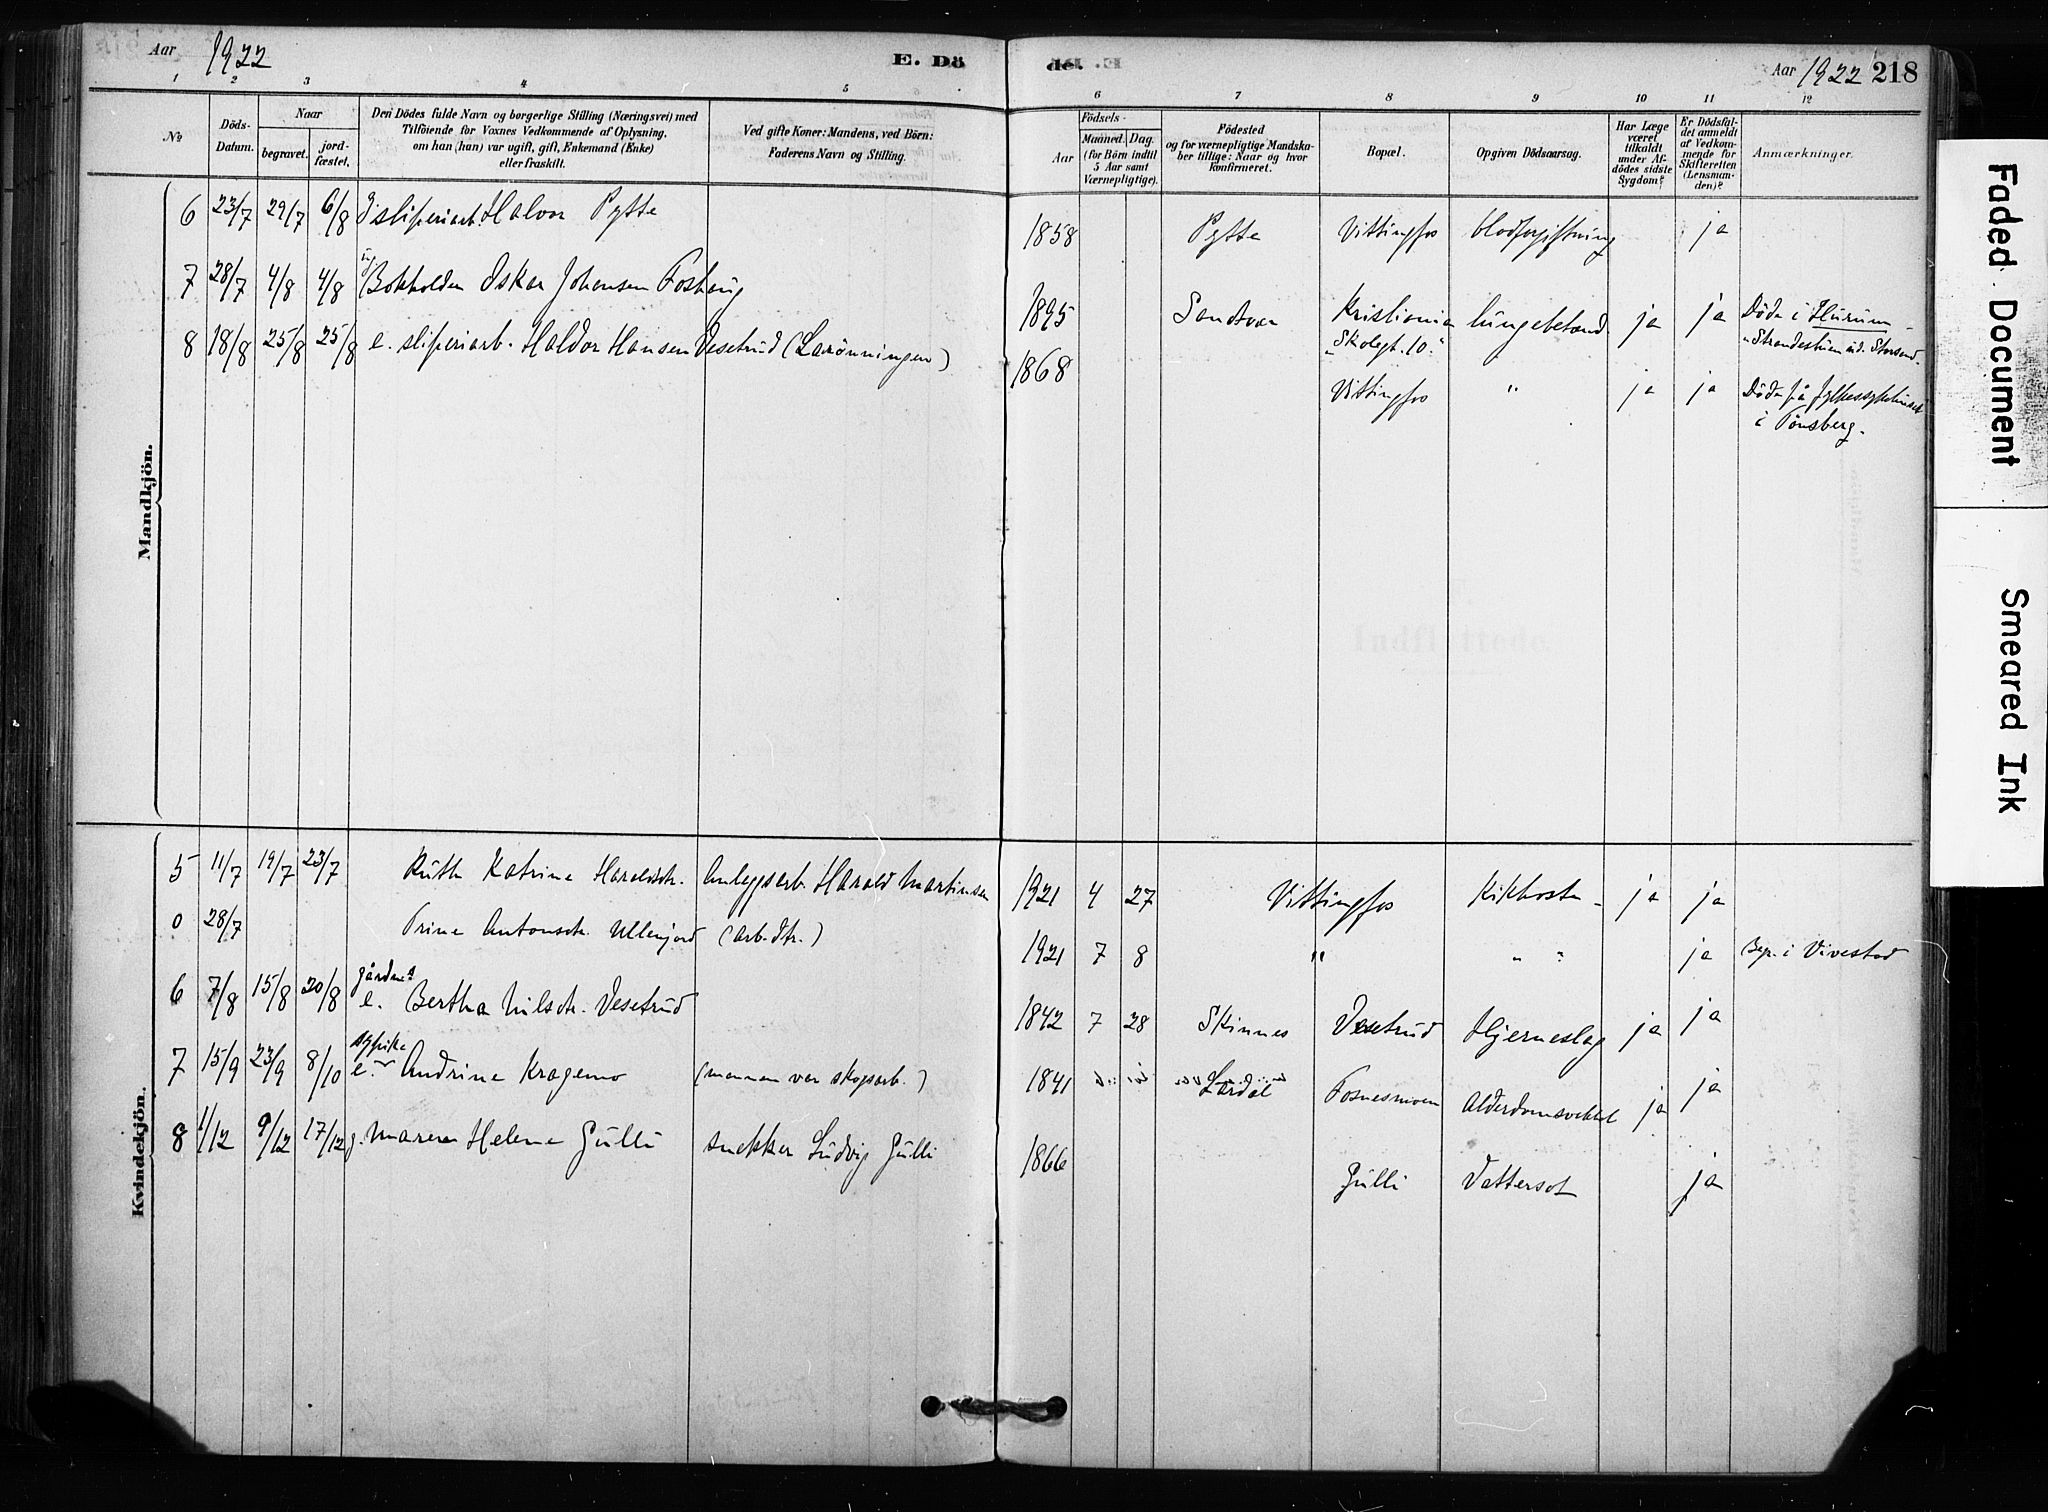 Aar 1922 E. Dö de. Aar 1922 218
1 2 3 4 5 6 7 8 9 10 11 12
No Döds-Datum. Naar begravet. jordfæstet. Den Dödes fulde Navn og borgerlige Stilling (Næringsvei) med Tilföiende for Voxnes Vedkommende af Oplysning, om han (hun) var ugift, gift, Enkemand (Enke) eller fraskilt. Ved gifte Koner: Mandens, ved Börn: Faderens Navn og Stilling. Födsels- Aar Maaned. Dag. (for Börn indtil 5 Aar samt Værnepligtige). Födested og for værnepligtige Mandskaber tillige: Naar og hvor konfirmeret. Bopæl. Opgiven Dödsaarsag. Har Læge været tilkaldt under Afdödes sidste Sygdom? Er Dödsfaldet anmeldt af Vedkommende for Skifteretten (Lensmanden)? Anmærkninger.
Mandkjön.
6 23/7 29/7 6/8 sliperiarb. Halvor Pytte 1858 Pytte Vittingfos blodforgiftning ja
7 28/7 4/8 4/8 Bokholder Oskar Johansen Foshaug 1895 Sandsvær Kristiania "Skolegt. 10." lungebetænd. ja ja Döde i Hurum -
8 18/8 25/8 25/8 e. sliperiarb. Haldor Hansen Vesetrud (Lærönningen) 1868 Vittingfos " ja ja Döde på fylkessykehuset i Tönsberg.
Kvindekjön.
5 11/7 19/7 23/7 Ruth Katrine Haraldsdtr. Anlegsarb. Harald Martinsen 1921 4 27 Vittingfos Kikhoste - ja ja
0 28/7 Trine Antonsdtr. Ullenjord (arb. dtr.) 1921 7 8 " " " ja Begr. i Vivestad
6 7/8 15/8 20/8 gårdm. e. Bertha Nilsdtr. Vesetrud 1842 7 28 Skinnes Vesetrud Hjerneslag ja ja
7 15/9 23/9 8/10 e. Andrine Kragemo (mannen var skogsarb.) 1841 Lardal Fosnesmoen Alderdomsvekkel ja ja
8 1/12 9/12 17/12 g. Maren Helene Gulli snekker Ludvig Gulli 1866 Gulli Vattersot ja
Faded Document
Smeared Ink